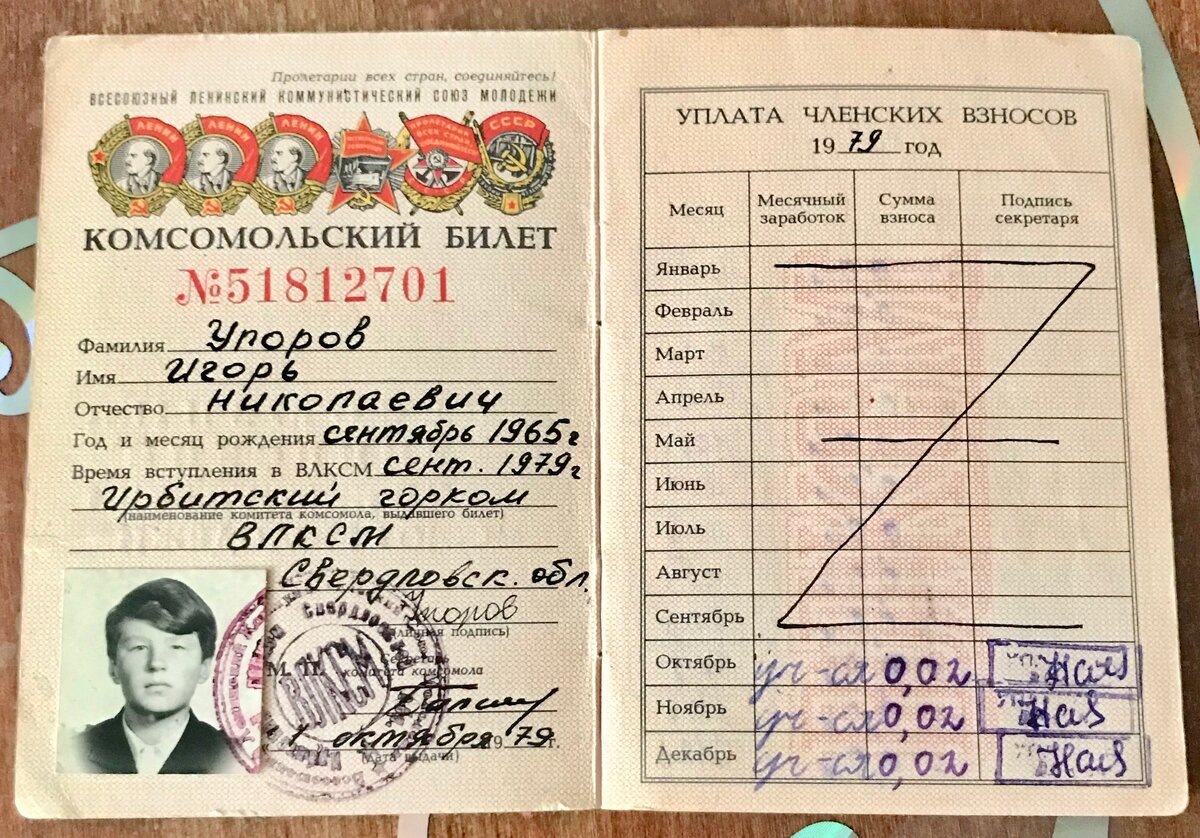 Пролетарии всех стран, соединяйтесь!
ВСЕСОЮЗНЫЙ ЛЕНИНСКИЙ КОММУНИСТИЧЕСКИЙ СОЮЗ МОЛОДЕЖИ
ЛЕНИН ЛЕНИН ЛЕНИН СССР
КОМСОМОЛЬСКИЙ БИЛЕТ
№51812701
Фамилия Упоров
Имя Игорь
Отчество Николаевич
Год и месяц рождения сентябрь 1965г
Время вступления в ВЛКСМ сент. 1979г
Ирбитский горком
(наименование комитета комсомола, выдавшего билет)
ВЛКСМ
Свердловск. обл.
Упоров
(личная подпись)
М. П. Секретарь
комитета комсомола
ВЛКСМ
1 октября 1979г.
(дата выдачи)
УПЛАТА ЧЛЕНСКИХ ВЗНОСОВ
1979 год
Месяц Месячный заработок Сумма взноса Подпись секретаря
Январь
Февраль
Март
Апрель
Май
Июнь
Июль
Август
Сентябрь
Октябрь уч-ся 0,02
Ноябрь уч-ся 0,02
Декабрь уч-ся 0,02